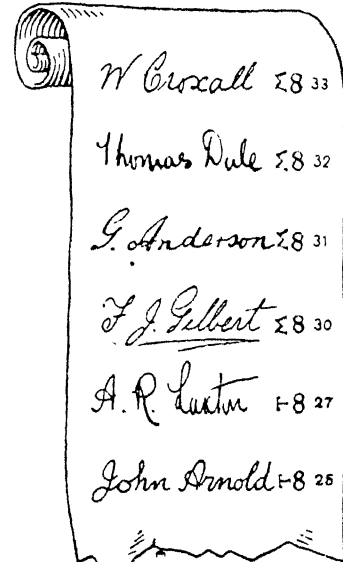 W Croxall Σ8 33
Thomas Dule Σ.8 32
G. Anderson Σ8 31
F J. Gilbert Σ8 30
A. R. Luxton ⊢8 27
John Arnold ⊢8 25